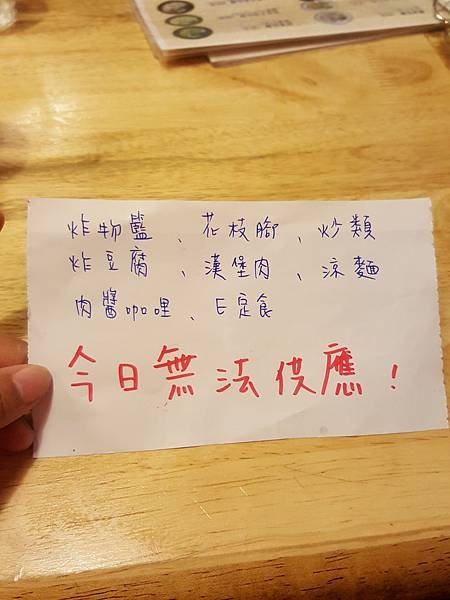 炸物籃、花枝腳、炒類
炸豆腐、漢堡肉、涼麵
肉醬咖哩、E定食
今日無法供應！